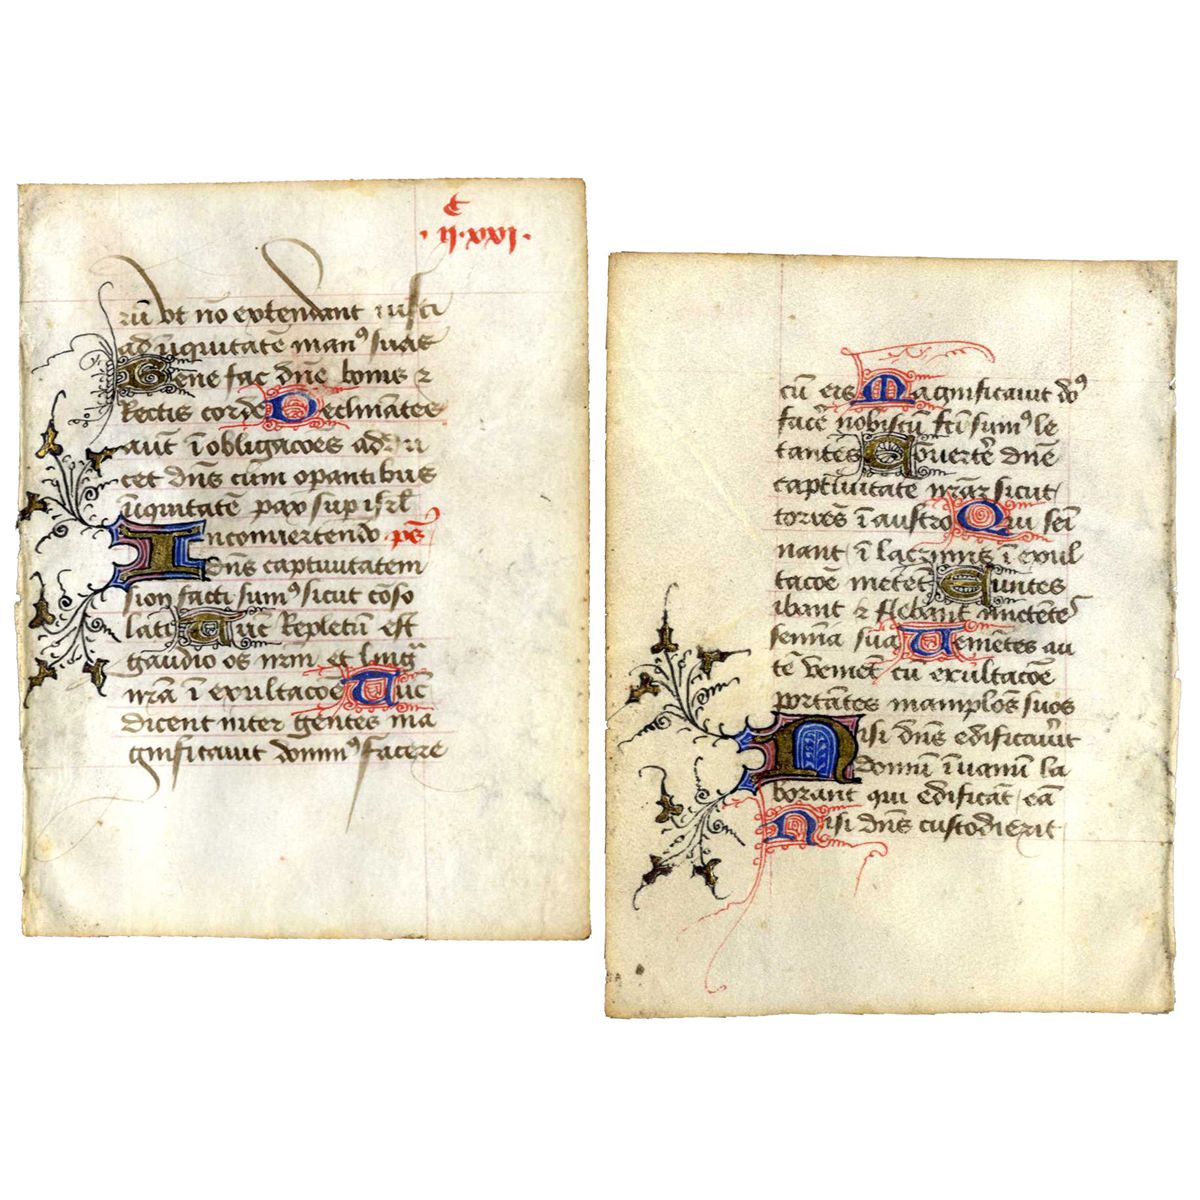 c
· ii · xxi ·
rū vt nō extendant iusti
ad iiquitatē man⁹ suas
Bene fac dn̄e bonis ⁊
Rectis corde Declinātes
aut̄ ī obligacōes addu
cet dn̄s cum opantibus
iiquitatē pax sup isrl̄
In conuertendo ps̄
dn̄s captiuitatem
sion facti sum⁹ sicut cōso
lati Tuc Repletū est
gaudio os nr̄m et linḡ
nr̄a ī exultacōe Tūc
dicent inter gentes ma
gnificauit domin⁹ facere
cū eis Magnificauit do⁹
facē nobiscū fcī sum⁹ le
tantes Cōuertē dn̄e
captiuitatē nr̄ar sicut
torrēs ī austro Qui sēi
nant ī lacrimis ī exul
tacōe metēt Euntes
ibant ⁊ flebant mictētes
semina sua Veniētes au
tē venient cū exultacōe
portātes maniplōs suos
Nisi dn̄s edificauit̄
domū ī uanū la
borant qui edificāt eā
Nisi dn̄s custodierit